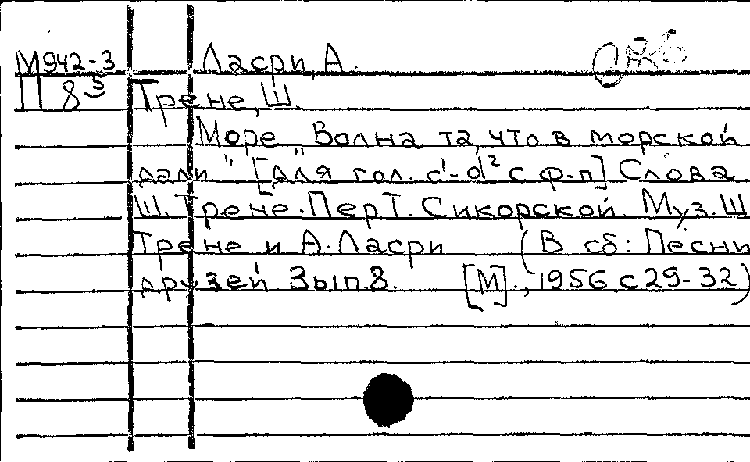 М942-3 Ласри, А.
П 8⁵ Трене, Ш.
Море „Волна та, что в морской
дали" [Для гол. c¹-d² с ф-п] Слова
Ш. Трене. Пер Т. Сикорской. Муз. Ш
Трене и А. Ласри (В сб: Песни
друзей Вып 8. [М]., 1956 с 29-32)